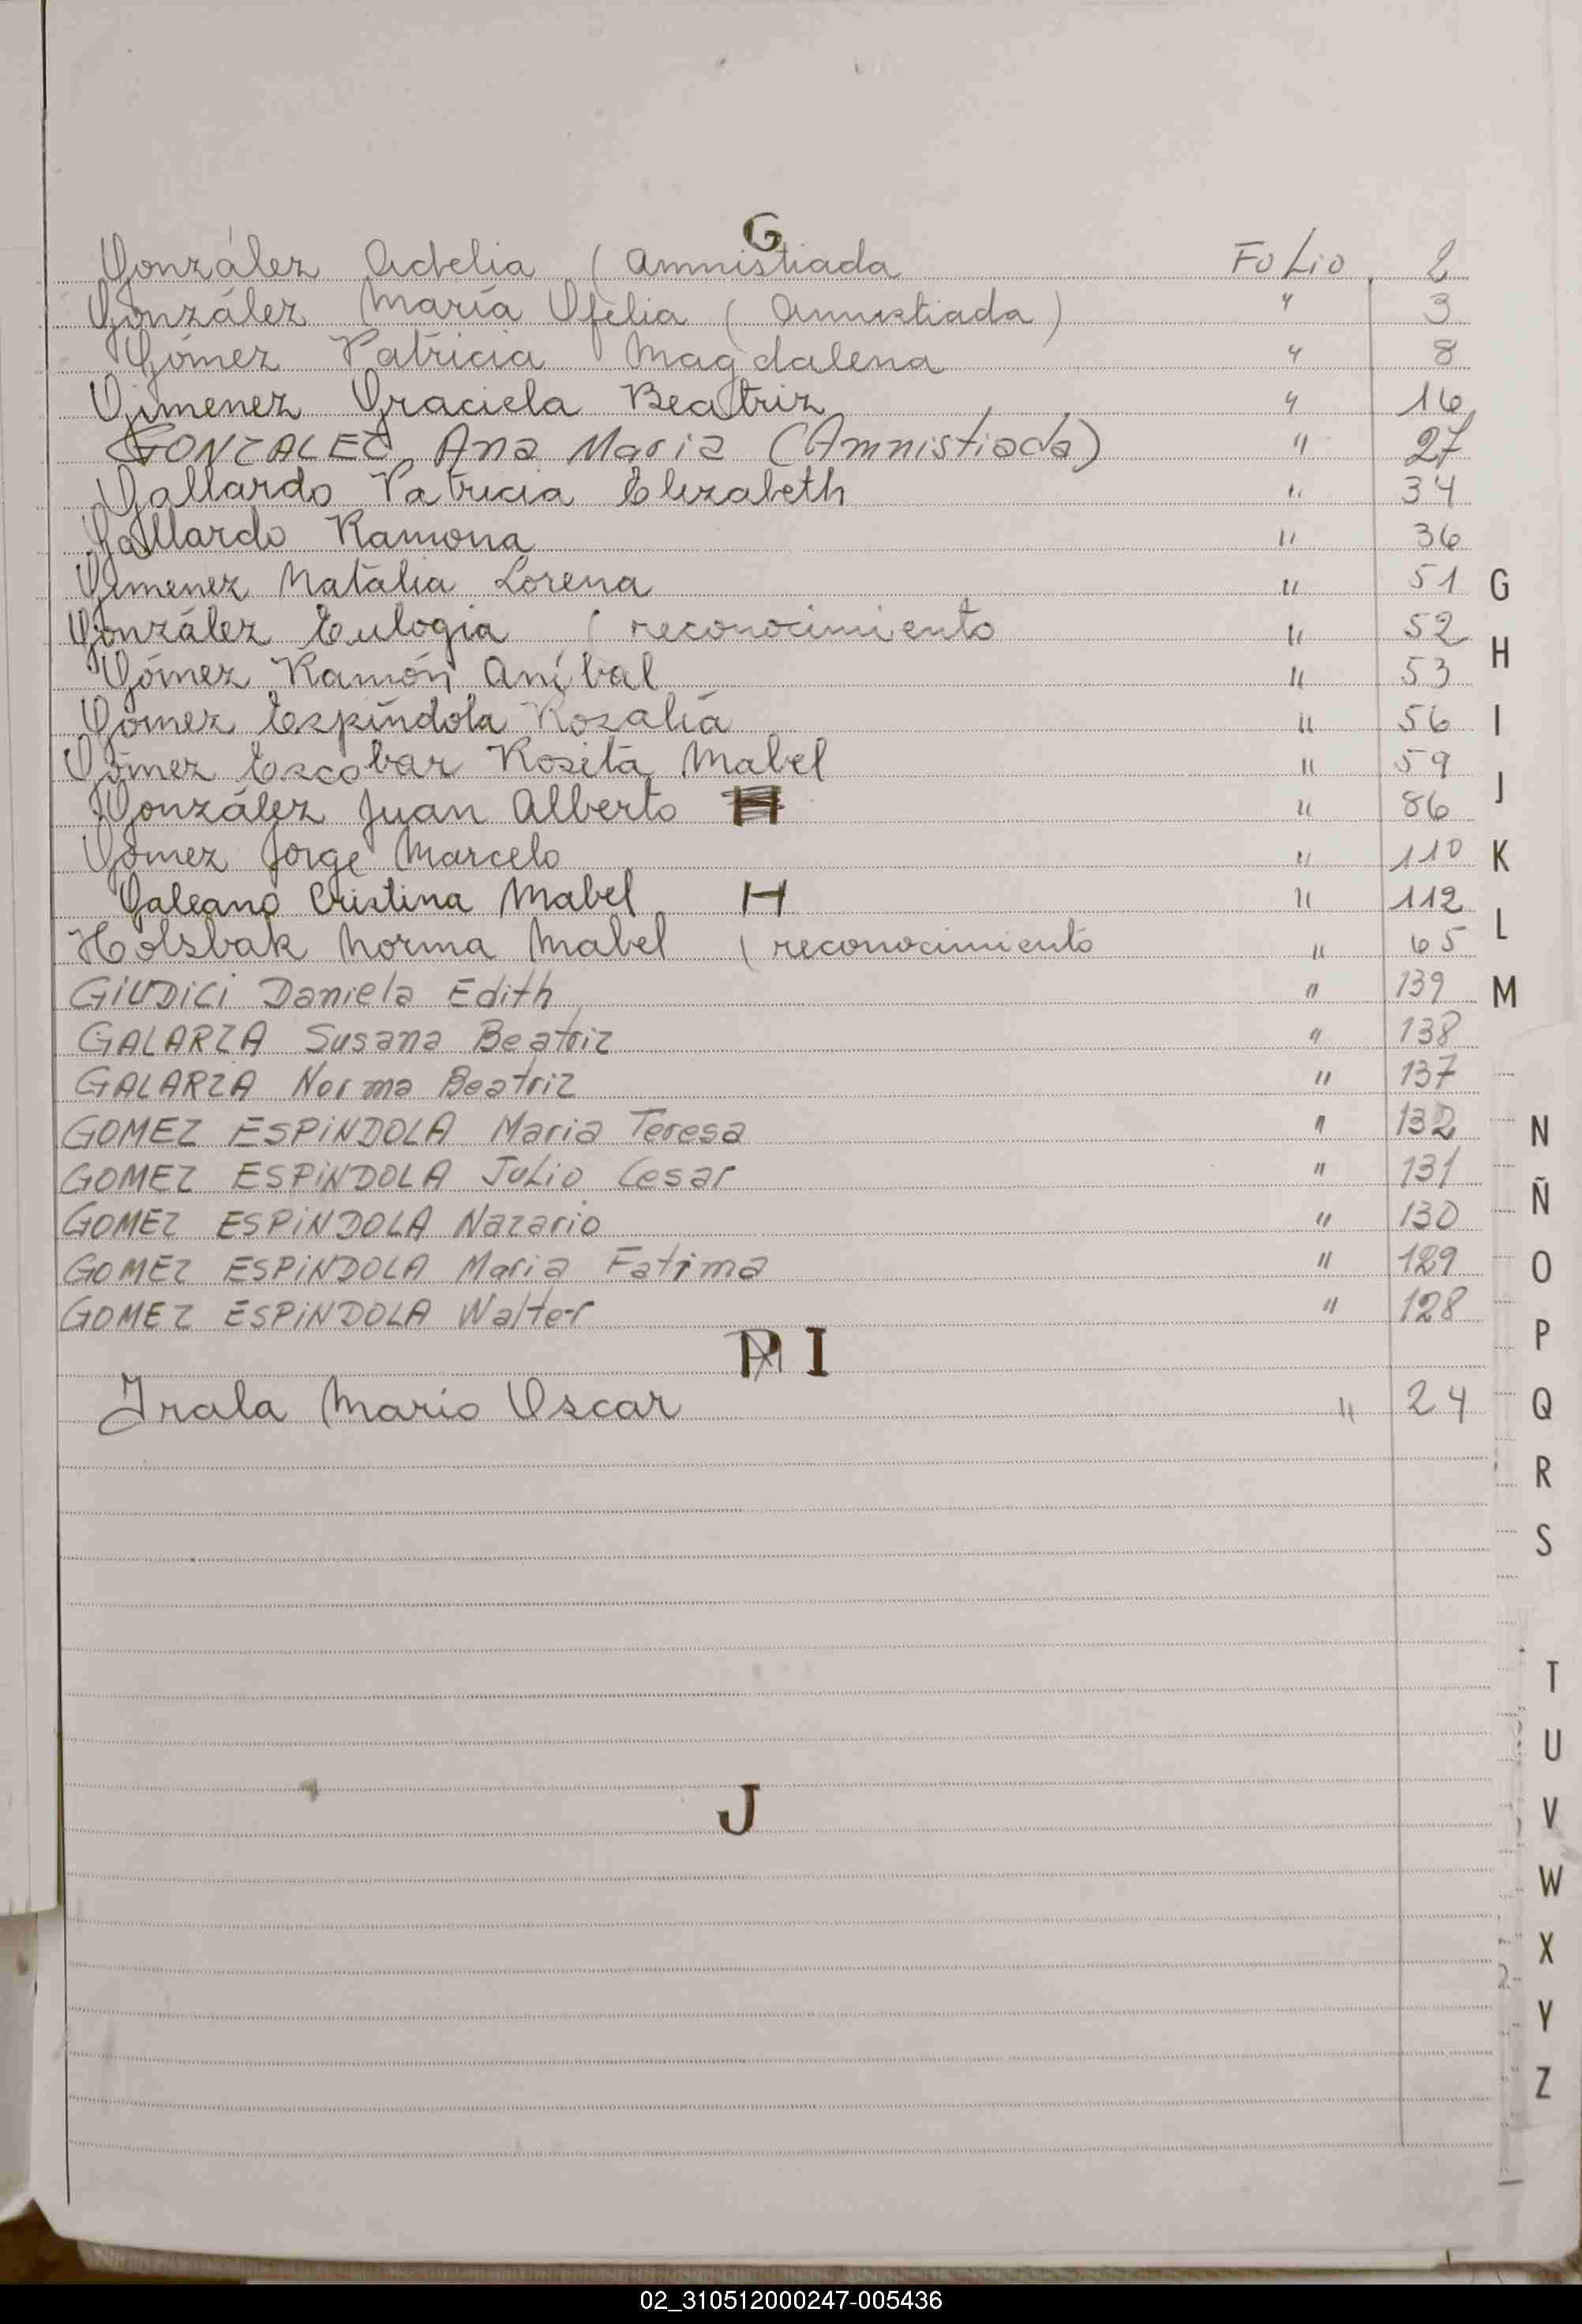 G
González Adelia ( Amnistiada FOLIO 2
González María Ofelia ( Amnistiada ) " 3
Gómez Patricia Magdalena " 8
Gimenez Graciela Beatriz " 16
GONZALEZ Ana Maria (Amnistiada) " 27
Gallardo Patricia Elizabeth " 34
Gallardo Ramona " 36
Gimenez Natalia Lorena " 51
González Eulogia ( reconocimiento " 52
Gómez Ramón Aníbal " 53
Gómez Espíndola Rosalía " 56
Gómez Escobar Rosita Mabel " 59
González Juan Alberto " 86
Gómez Jorge Marcelo " 110
Galeano Cristina Mabel H " 112
Holsbak Norma Mabel ( reconocimiento " 65
GiUDiCi Daniela Edith " 139
GALARZA Susana Beatriz " 138
GALARZA Norma Beatriz " 137
GOMEZ ESPiNDOLA Maria Teresa " 132
GOMEZ ESPiNDOLA Julio Cesar " 131
GOMEZ ESPiNDOLA Nazario " 130
GOMEZ ESPiNDOLA Maria Fatima " 129
GOMEZ ESPiNDOLA Walter " 128
I
Irala Mario Oscar " 24
J
G
H
I
J
K
L
M
N
Ñ
O
P
Q
R
S
T
U
V
W
X
Y
Z
02_310512000247-005436